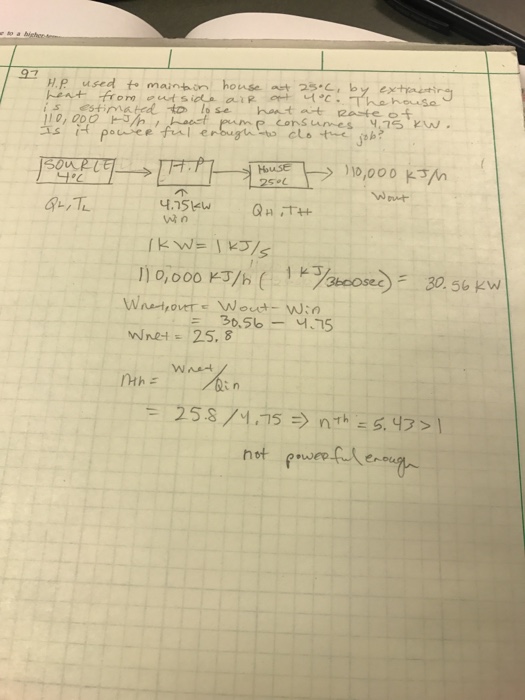 e to a higher-te
97
H.P. used to maintain house at 25°C, by extracting
heat from outside air at 4°C. The house
is estimated to lose heat at rate of
110,000 kJ/h, heat pump consumes 4.75 kW.
Is it powerful enough to do the job?
SOURCE H.P House 110,000 kJ/h
4°C 25°C Wout
QL, TL 4.75kW QH, TH
Win
1 kW = 1 kJ/s
110,000 kJ/h ( 1 kJ/3600sec) = 30.56 kW
Wnet,out = Wout - Win
= 30.56 - 4.75
Wnet = 25.8
nth = Wnet/Qin
= 25.8/4.75 => nth = 5.43>1
not powerful enough